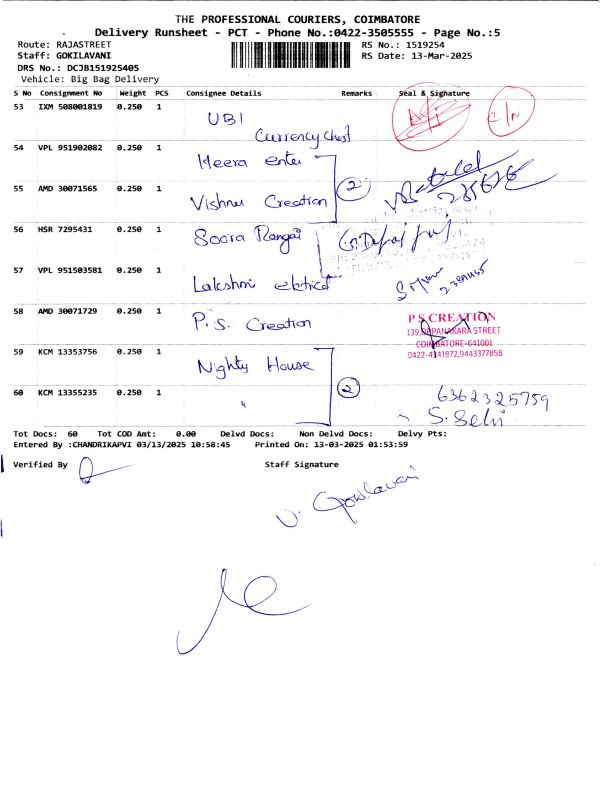 THE PROFESSIONAL COURIERS, COIMBATORE
Delivery Runsheet - PCT - Phone No.:0422-3505555 - Page No.:5
Route: RAJASTREET
RS No.: 1519254
Staff: GOKILAVANI
RS Date: 13-Mar-2025
DRS No.: DCJB151925405
Vehicle: Big Bag Delivery
S No Consignment No Weight PCS Consignee Details Remarks Seal & Signature
53 IXM 508001819 0.250 1 UBI
Currency Chest
54 VPL 951902082 0.250 1 Heera enter
55 AMD 30071565 0.250 1 Vishnu Creation 2
56 HSR 7295431 0.250 1 Soora Rangai
57 VPL 951503581 0.250 1 Lakshmi
58 AMD 30071729 0.250 1 P.S. Creation
P S CREATION
STREET
COIMBATORE-641001
0422-4341872,9443377858
59 KCM 13353756 0.250 1 Nighty House
60 KCM 13355235 0.250 1 " 2 6362325759
S. Selvi
Tot Docs: 60 Tot COD Amt: 0.00 Delvd Docs: Non Delvd Docs: Delvy Pts:
Entered By :CHANDRIKAPVI 03/13/2025 10:58:45 Printed On: 13-03-2025 01:53:59
Verified By Staff Signature
V. Gokilavani